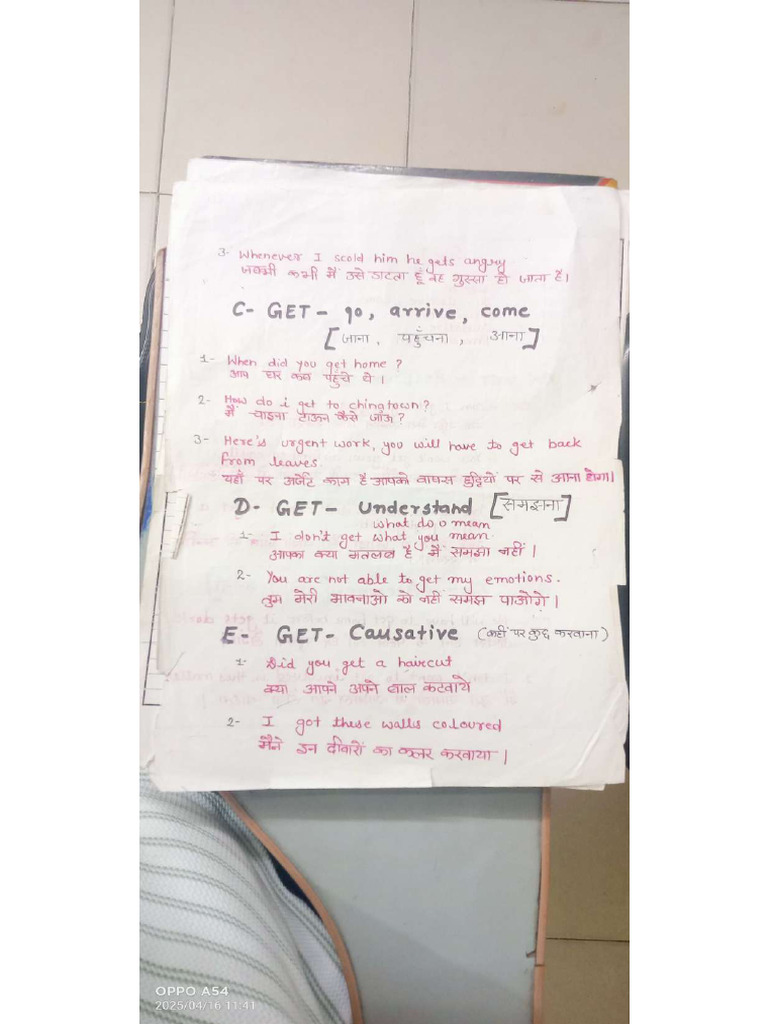 3- Whenever I scold him he gets angry
जबभी कभी मैं उसे डाटता हूँ वह गुस्सा हो जाता है।
C- GET - go, arrive, come
[जाना, पहुँचना, आना]
1- When did you get home?
आप घर कब पहुंचे थे।
2- How do i get to chinatown?
मैं चाइना टाऊन कैसे जाँऊ?
3- Here's urgent work, you will have to get back
from leaves.
यहाँ पर अर्जेंट काम है आपको वापस छुट्टियों पर से आना होगा।
D- GET - Understand [समझना]
what do u mean
1- I don't get what you mean.
आपका क्या मतलब है मैं समझा नहीं।
2- You are not able to get my emotions.
तुम मेरी भावनाओ को नहीं समझ पाओगे।
E- GET- Causative (कहीं पर कुछ करवाना)
1- Did you get a haircut
क्या आपने अपने बाल कटवाये
2- I got these walls coloured
मैंने इन दीवारों का कलर करवाया।
OPPO A54
2025/04/16 11:41